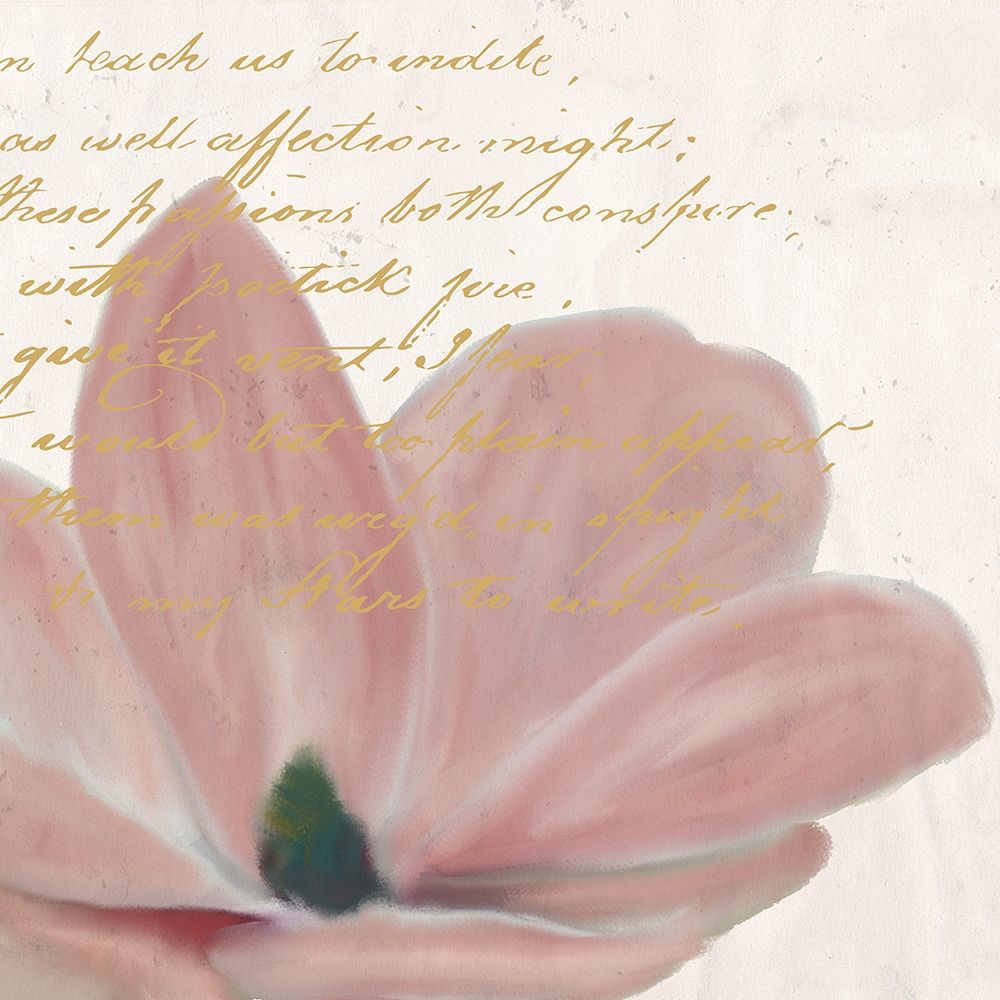 n teach us to indite,
as well affection might;
these passions both conspire;
with poetick fire,
give it vent, I fear;
would but too plain appear,
them was urg'd, in spight
to my Stars to write.